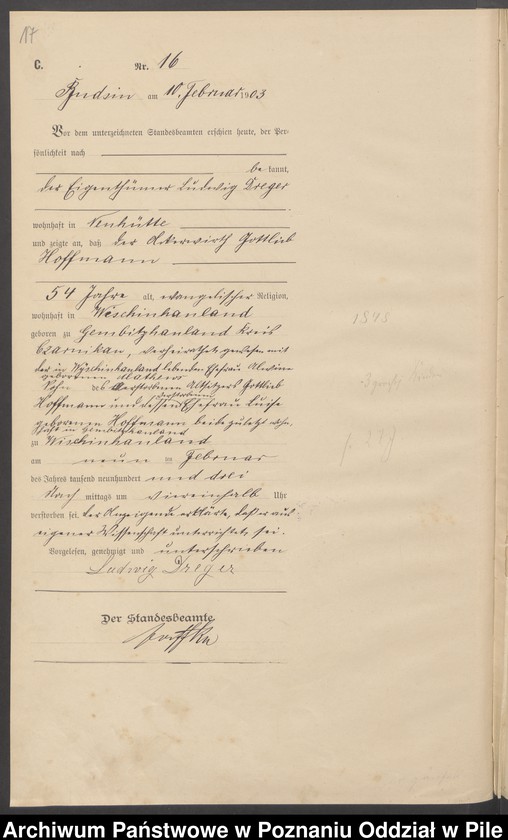 17
C. Nr. 16
Budsin am 10. Februar 1903
Vor dem unterzeichneten Standesbeamten erschien heute, der Per-
sönlichkeit nach
be kannt,
der Eigenthümer Ludwig Dreger
wohnhaft in Neuhütte
und zeigte an, daß der Ackerwirth Gottlieb
Hoffmann
54 Jahre alt, evangelischer Religion,
wohnhaft in Wischinhauland
geboren zu Gembitzhauland Kreis
Czarnikau, verheirathet gewesen mit
der in Wischinhauland lebenden Ehefrau
geborenen
Sohn des verstorbenen Altsitzers Gottlieb
verstorbenen
Hoffmann und dessen Ehefrau Luise
geborene Hoffmann beide zuletzt wohn-
haft in Gembitzhauland
zu Wischinhauland
am neun ten Februar
des Jahres tausend neunhundert und drei
Nach mittags um viereinhalb Uhr
verstorben sei. Der Anzeigende erklärte, daß er aus
eigener Wissenschaft unterrichtet sei.
Vorgelesen, genehmigt und unterschrieben
Ludwig Dreger
Der Standesbeamte
1848
Archiwum Państwowe w Poznaniu Oddział w Pile